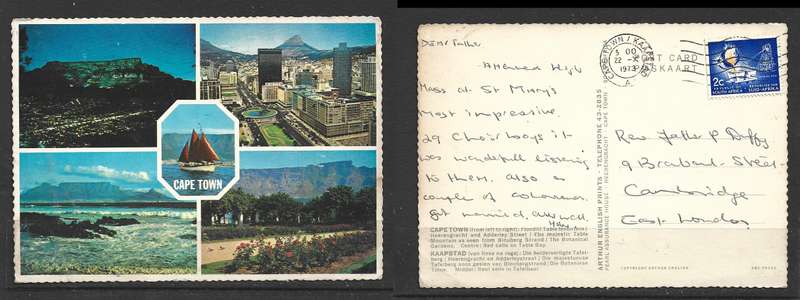 CAPE TOWN
Dear Father
Attended High
Mass at St Mary's
Most impressive
29 Choir boys it
was wonderful listening
to them. also a
couple of
got married, all well
CAPE TOWN (from left to right): Floodlit Table Mountain /
Heerengracht and Adderley Street / The majestic Table
Mountain as seen from Blouberg Strand / The Botanical
Gardens. Centre: Sail calls on Table Bay
KAAPSTAD (van links na regs): Die
Tafelberg soos gesien van Bloubergstrand / Die Botaniese
Tuine. Middel:
ARTHUR ENGLISH PRINTS - TELEPHONE 43-2835
PEARL ASSURANCE HOUSE - HEERENGRACHT - CAPE TOWN
CAPE TOWN / KAAPSTAD
3 00
22 - X
1973
A
POST CARD
POSKAART
2c
REPUBLIC OF SOUTH AFRICA
REPUBLIEK VAN SUID-AFRIKA
Rev Father P Duffy
9 Brabant Street
Cambridge
East London
COPYRIGHT ARTHUR ENGLISH